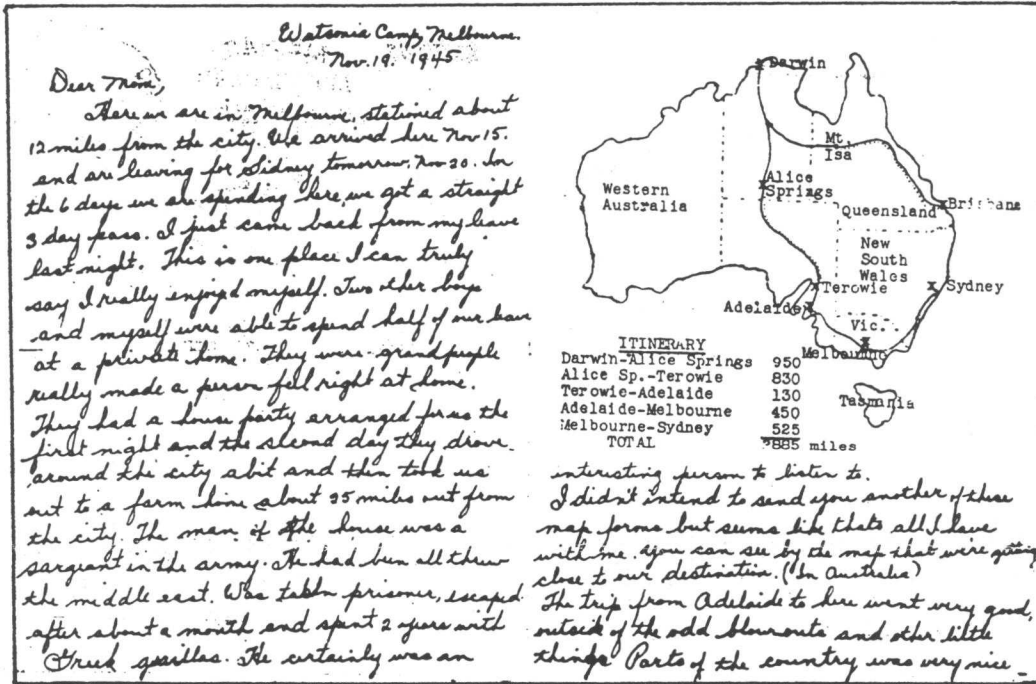 Watsonia Camp, Melbourne.
Nov. 19. 1945
Dear Mom,
Here we are in Melbourne, stationed about
12 miles from the city. We arrived here Nov 15.
and are leaving for Sidney tomorrow, Nov 20. In
the 6 days we are spending here, we got a straight
3 day pass. I just came back from my leave
last night. This is one place I can truly
say I really enjoyed myself. Two other boys
and myself were able to spend half of our leave
at a private home. They were grand people
really made a person feel right at home.
They had a house party arranged for us the
first night and the second day they drove
around the city abit and then took us
out to a farm home about 35 miles out from
the city. The man of the house was a
sargeant in the army. He had been all threw
the middle east. Was taken prisoner, escaped
after about a month and spent 2 years with
Greek guarillas. He certainly was an
Darwin
Mt.
Isa
Alice
Springs
Western
Australia
Queensland
Brisbane
New
South
Wales
Terowie
Sydney
Adelaide
Vic.
Melbourne
Tasmania
ITINERARY
Darwin-Alice Springs 950
Alice Sp.-Terowie 830
Terowie-Adelaide 130
Adelaide-Melbourne 450
Melbourne-Sydney 525
TOTAL 2885 miles
interesting person to listen to.
I didn't intend to send you another of these
map forms but seems like thats all I have
with me. You can see by the map that were getting
close to our destination. (In Australia)
The trip from Adelaide to here went very good,
outside of the odd blowouts and other little
things Parts of the country was very nice